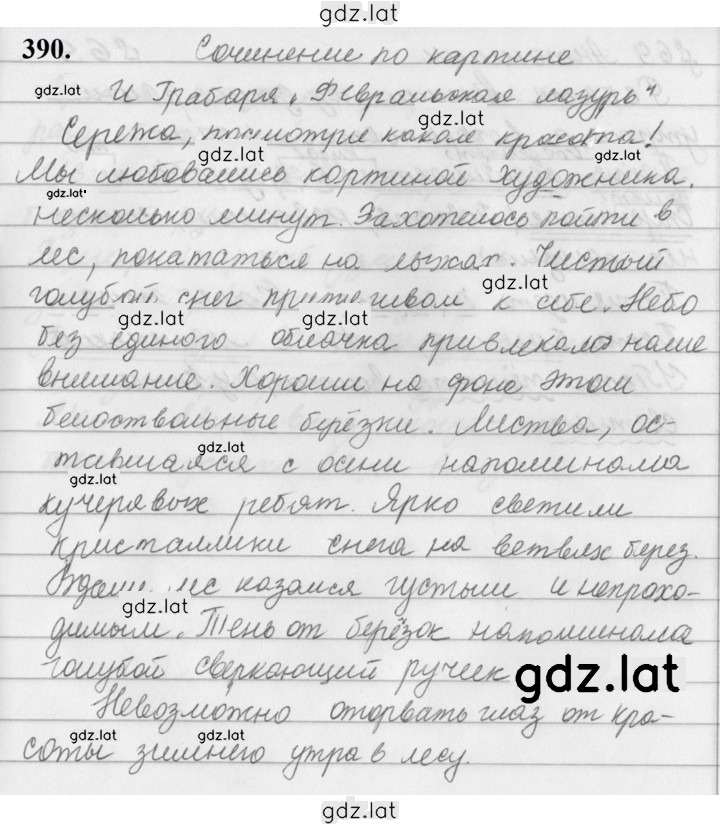 gdz.lat
390. Сочинение по картине
gdz.lat
И Грабаря „Февральская лазурь"
gdz.lat
Сережа, посмотри какая красота!
gdz.lat gdz.lat
Мы любовались картиной художника.
gdz.lat
несколько минут. Захотелось пойти в
лес, покататься на лыжах. Чистый
gdz.lat
голубой снег притягивал к себе. Небо
gdz.lat gdz.lat
без единого облачка привлекало наше
внимание. Хороши на фоне этом
белоствольные берёзки. Листва, ос-
gdz.lat
тавшаяся с осени напоминала
кучерявых ребят. Ярко светили
кристаллики снега на ветвях берез.
Вдали лес казался густым и непрохо-
gdz.lat
димым. Тень от берёзок напоминала
голубой сверкающий ручеек
gdz.lat
gdz.lat
Невозможно оторвать глаз от кра-
gdz.lat gdz.lat
соты зимнего утра в лесу.
gdz.lat